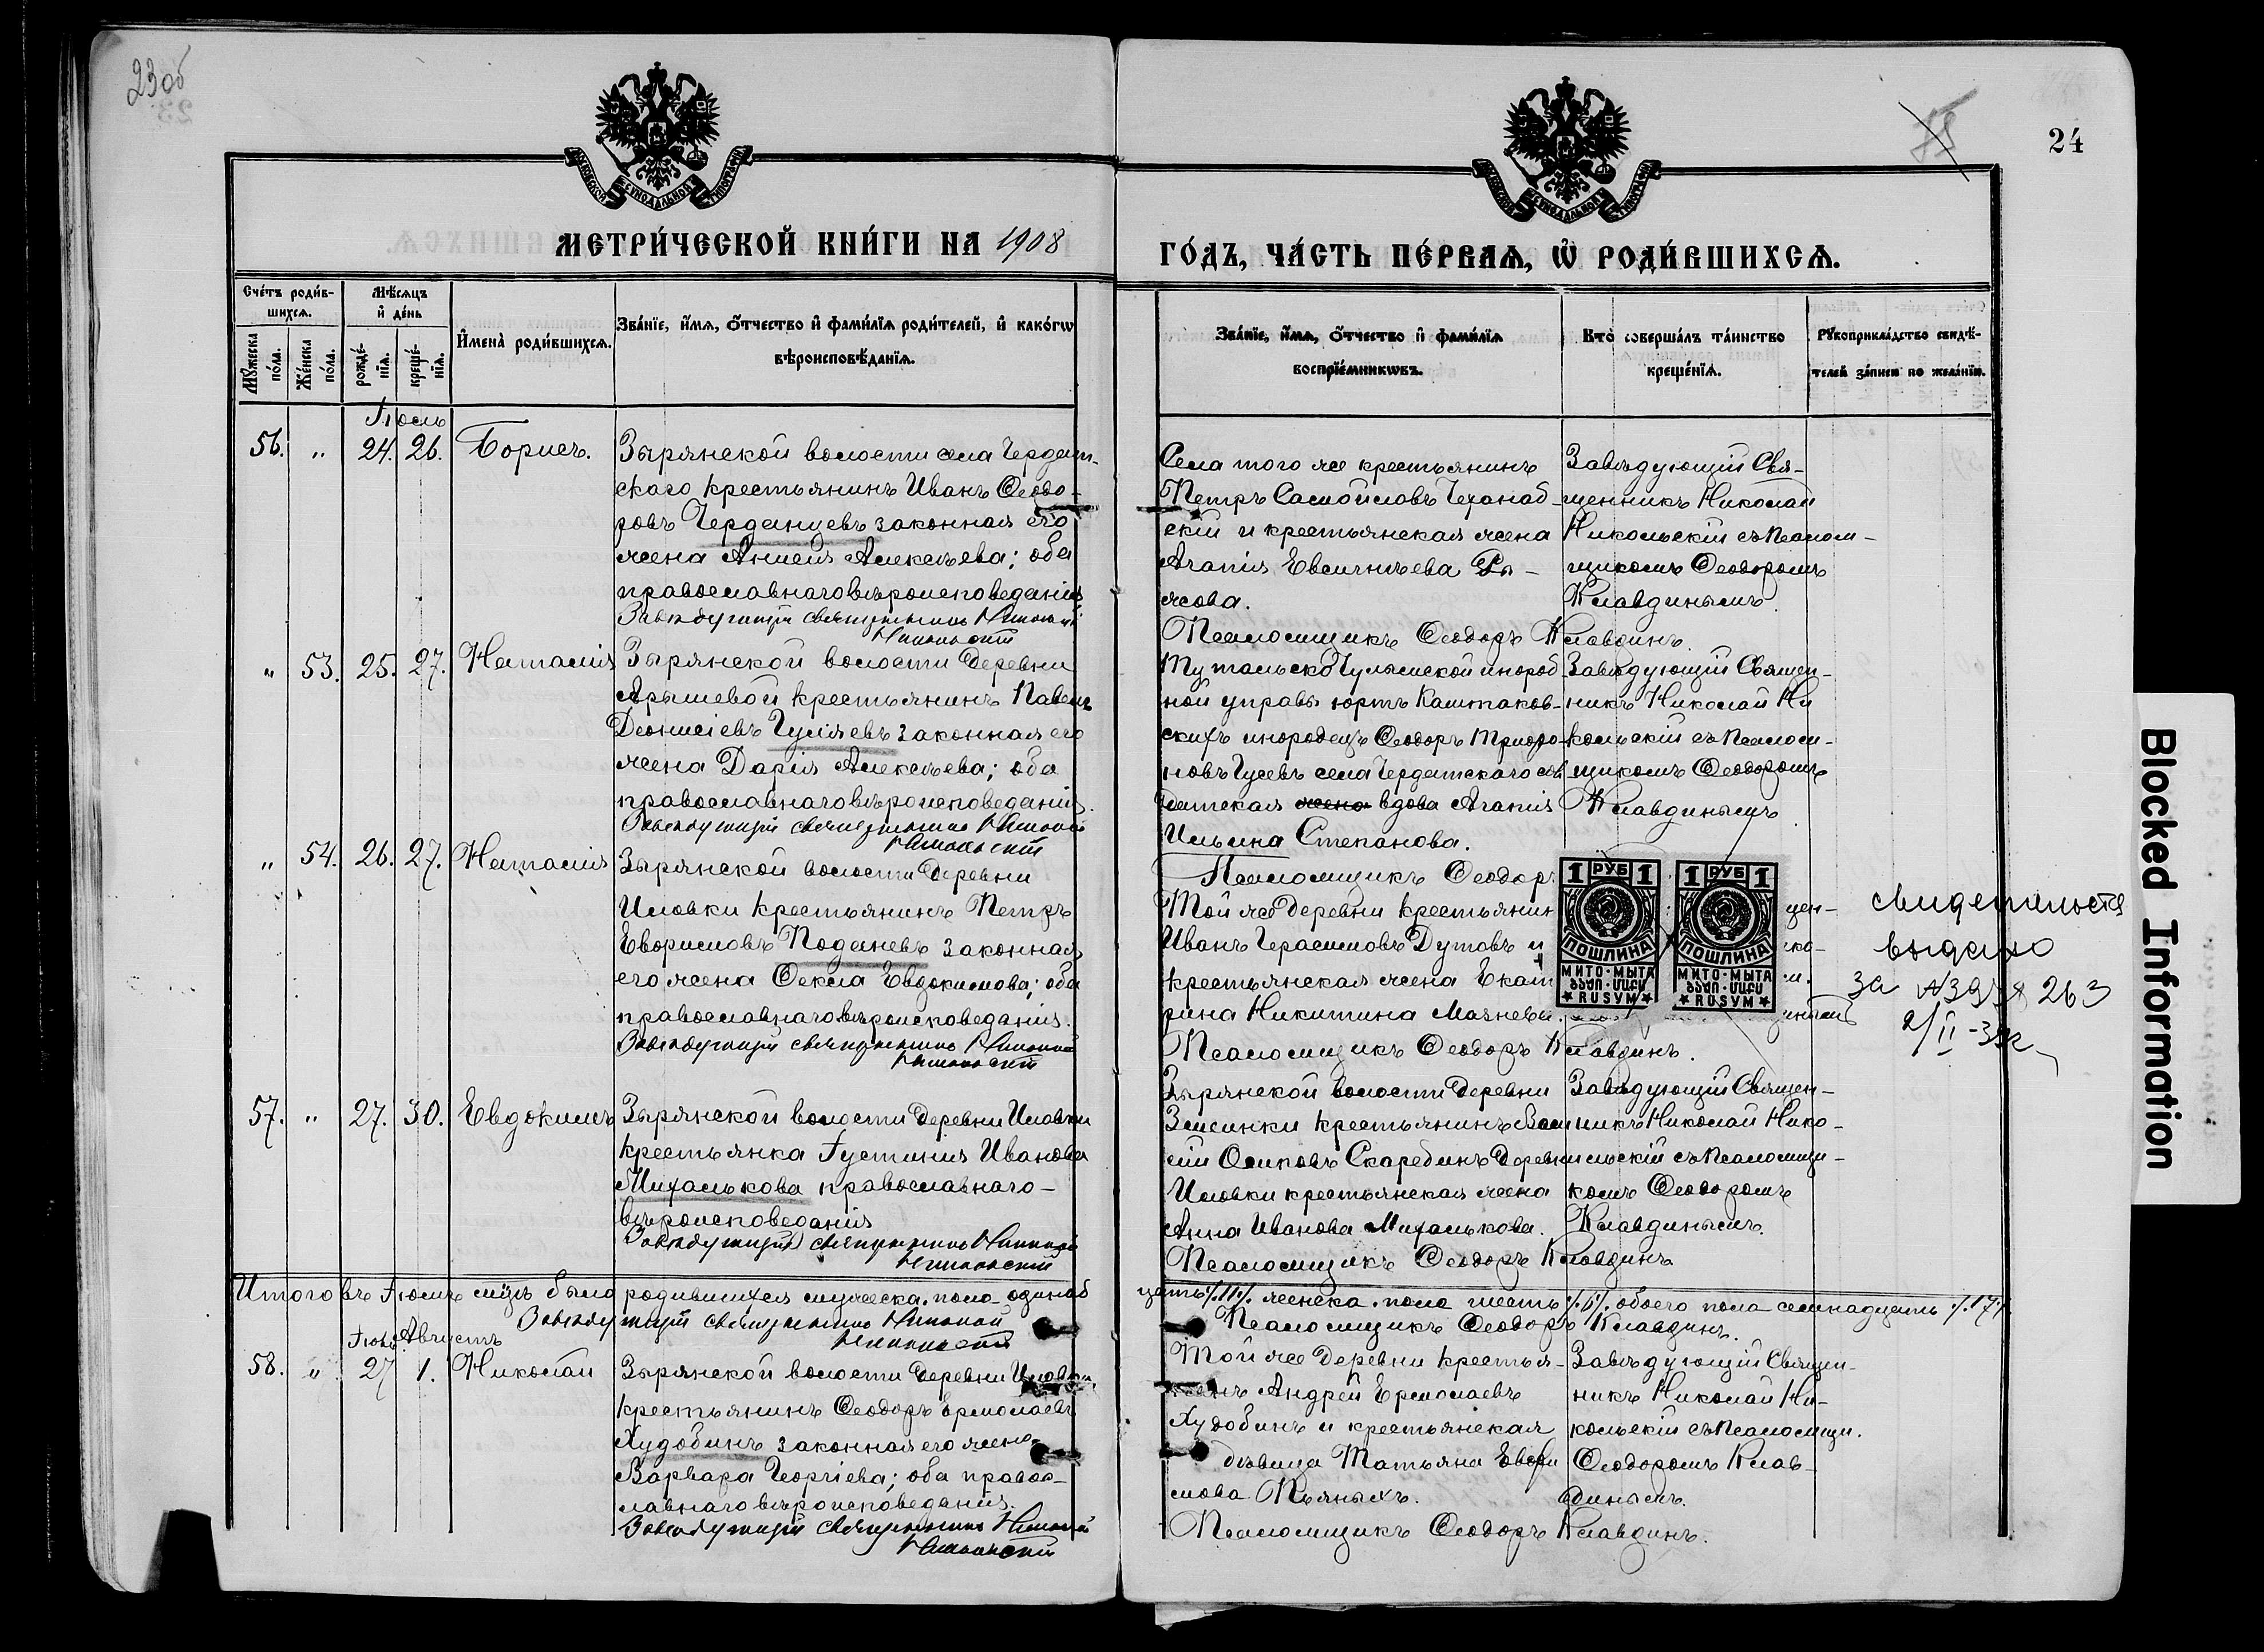 23 об
24
МЕТРИ́ЧЕСКОЙ КНИ́ГИ НА 1908
ГО́ДЪ, ЧА́СТЬ ПЕ́РВАѦ, Ѡ РОДИ́ВШИХСѦ.
Сче́тъ роди́в-
шихсѧ.
Мѣ́сѧцъ
и де́нь
Мꙋ́жеска
по́ла.
Же́нска
по́ла.
рожде́-
нїѧ.
креще́-
нїѧ.
Имена̀ роди́вшихсѧ.
Зва́нїе, и́мѧ, о́тчество и фами́лїѧ роди́телей, и како́гѡ
вѣроисповѣ́данїѧ.
Зва́нїе, и́мѧ, о́тчество и фами́лїѧ
воспрїе́мникѡвъ.
Кто̀ соверша́лъ та́инство
креще́нїѧ.
Рꙋкоприкла́дство свидѣ́-
телей за́писи по жела́нїю.
Іюль
56. „ 24. 26. Борисъ.
Зырянской волости села Чердат-
скаго крестьянинъ Иванъ Ѳеодо-
ровъ Черданцевъ законная его
жена Алексѣева; оба
православнаго вѣроисповеданія
Завѣдующій священникъ Николай
Никольскій
Села того же крестьянинъ
Петръ Самойловъ
скій и крестьянская жена
Агапія
жова.
Псаломщикъ Ѳеодоръ Клавдинъ.
Завѣдующій Свя-
щенникъ Николай
Никольскій съ Псалом-
щикомъ Ѳеодоромъ
Клавдинымъ.
„ 53. 25. 27. Наталія
Зырянской волости деревни
Арышевой крестьянинъ Павелъ
Діонисіевъ законная его
жена Дарія Алексѣева; оба
православнаго вѣроисповеданія.
Завѣдующій священникъ Николай
Никольскій
Тутальско Чулымской инород-
ной управы юртъ Каштаков-
скихъ инородецъ Ѳеодоръ
новъ Гусевъ села Чердатскаго
жена вдова Агапія
Ильина Степанова.
Псаломщикъ Ѳеодор
Завѣдующій Священ-
никъ Николай Ни
кольскій съ Псалом-
щикомъ Ѳеодоромъ
Клавдинымъ
„ 54. 26. 27. Наталія
Зырянской волости деревни
Иловки крестьянинъ Петръ
законная
его жена Ѳекла Евдокимова; оба
православнаго вѣроисповеданія.
Завѣдующій священникъ Николай
Никольскій
Той же деревни крестьянин
Иванъ Герасимовъ Дутовъ и
крестьянская жена Екат
рина Никитина
Псаломщикъ Ѳеодоръ Клавдинъ.
щен-
ко-
м.
1 РУБ 1
ПОШЛИНА
МИТО·МЫТА
RUSYM
1 РУБ 1
ПОШЛИНА
МИТО·МЫТА
RUSYM
свидетельство
выдано
за № 263
2/II-
57. „ 27. 30. Евдокимъ
Зырянской волости деревни Иловки
крестьянка Іустинія Иванова
Михалькова православнаго-
вѣроисповеданія
Завѣдующій священникъ Николай
Никольскій
Зырянской волости деревни
крестьянинъ Васи
лій Осиповъ Скарединъ деревни
Иловки крестьянская жена
Анна Иванова Михалькова.
Псаломщикъ Ѳеодоръ Клавдинъ
Завѣдующій Священ-
никъ Николай Нико-
льскій съ Псаломщи-
комъ Ѳеодоромъ
Клавдинымъ.
Итого въ Іюлѣ м͠цѣ было родившихся мужеска. пола одинад
цать ·/.11·/. женска. пола шесть ·/.6·/. обоего пола семнадцать ·/.17·/.
Завѣдующій священникъ Николай
Никольскій
Псаломщикъ Ѳеодоръ Клавдинъ.
Іюль Августъ
58. „ 27 1. Николай
Зырянской волости деревни Иловки
крестьянинъ Ѳеодоръ Ермолаевъ
Худобинъ законная его жена
Варвара Георгіева; оба право-
славнаго вѣроисповеданія.
Завѣдующій священникъ Николай
Никольскій
Той же деревни крестья-
нинъ Андрей Ермолаевъ
Худобинъ и крестьянская
дѣвица Татьяна
Пьяныхъ.
Псаломщикъ Ѳеодоръ Клавдинъ.
Завѣдующій Священ-
никъ Николай Ни-
кольскій съ Псаломщи.
Ѳеодоромъ Клав-
динымъ.
Blocked Information